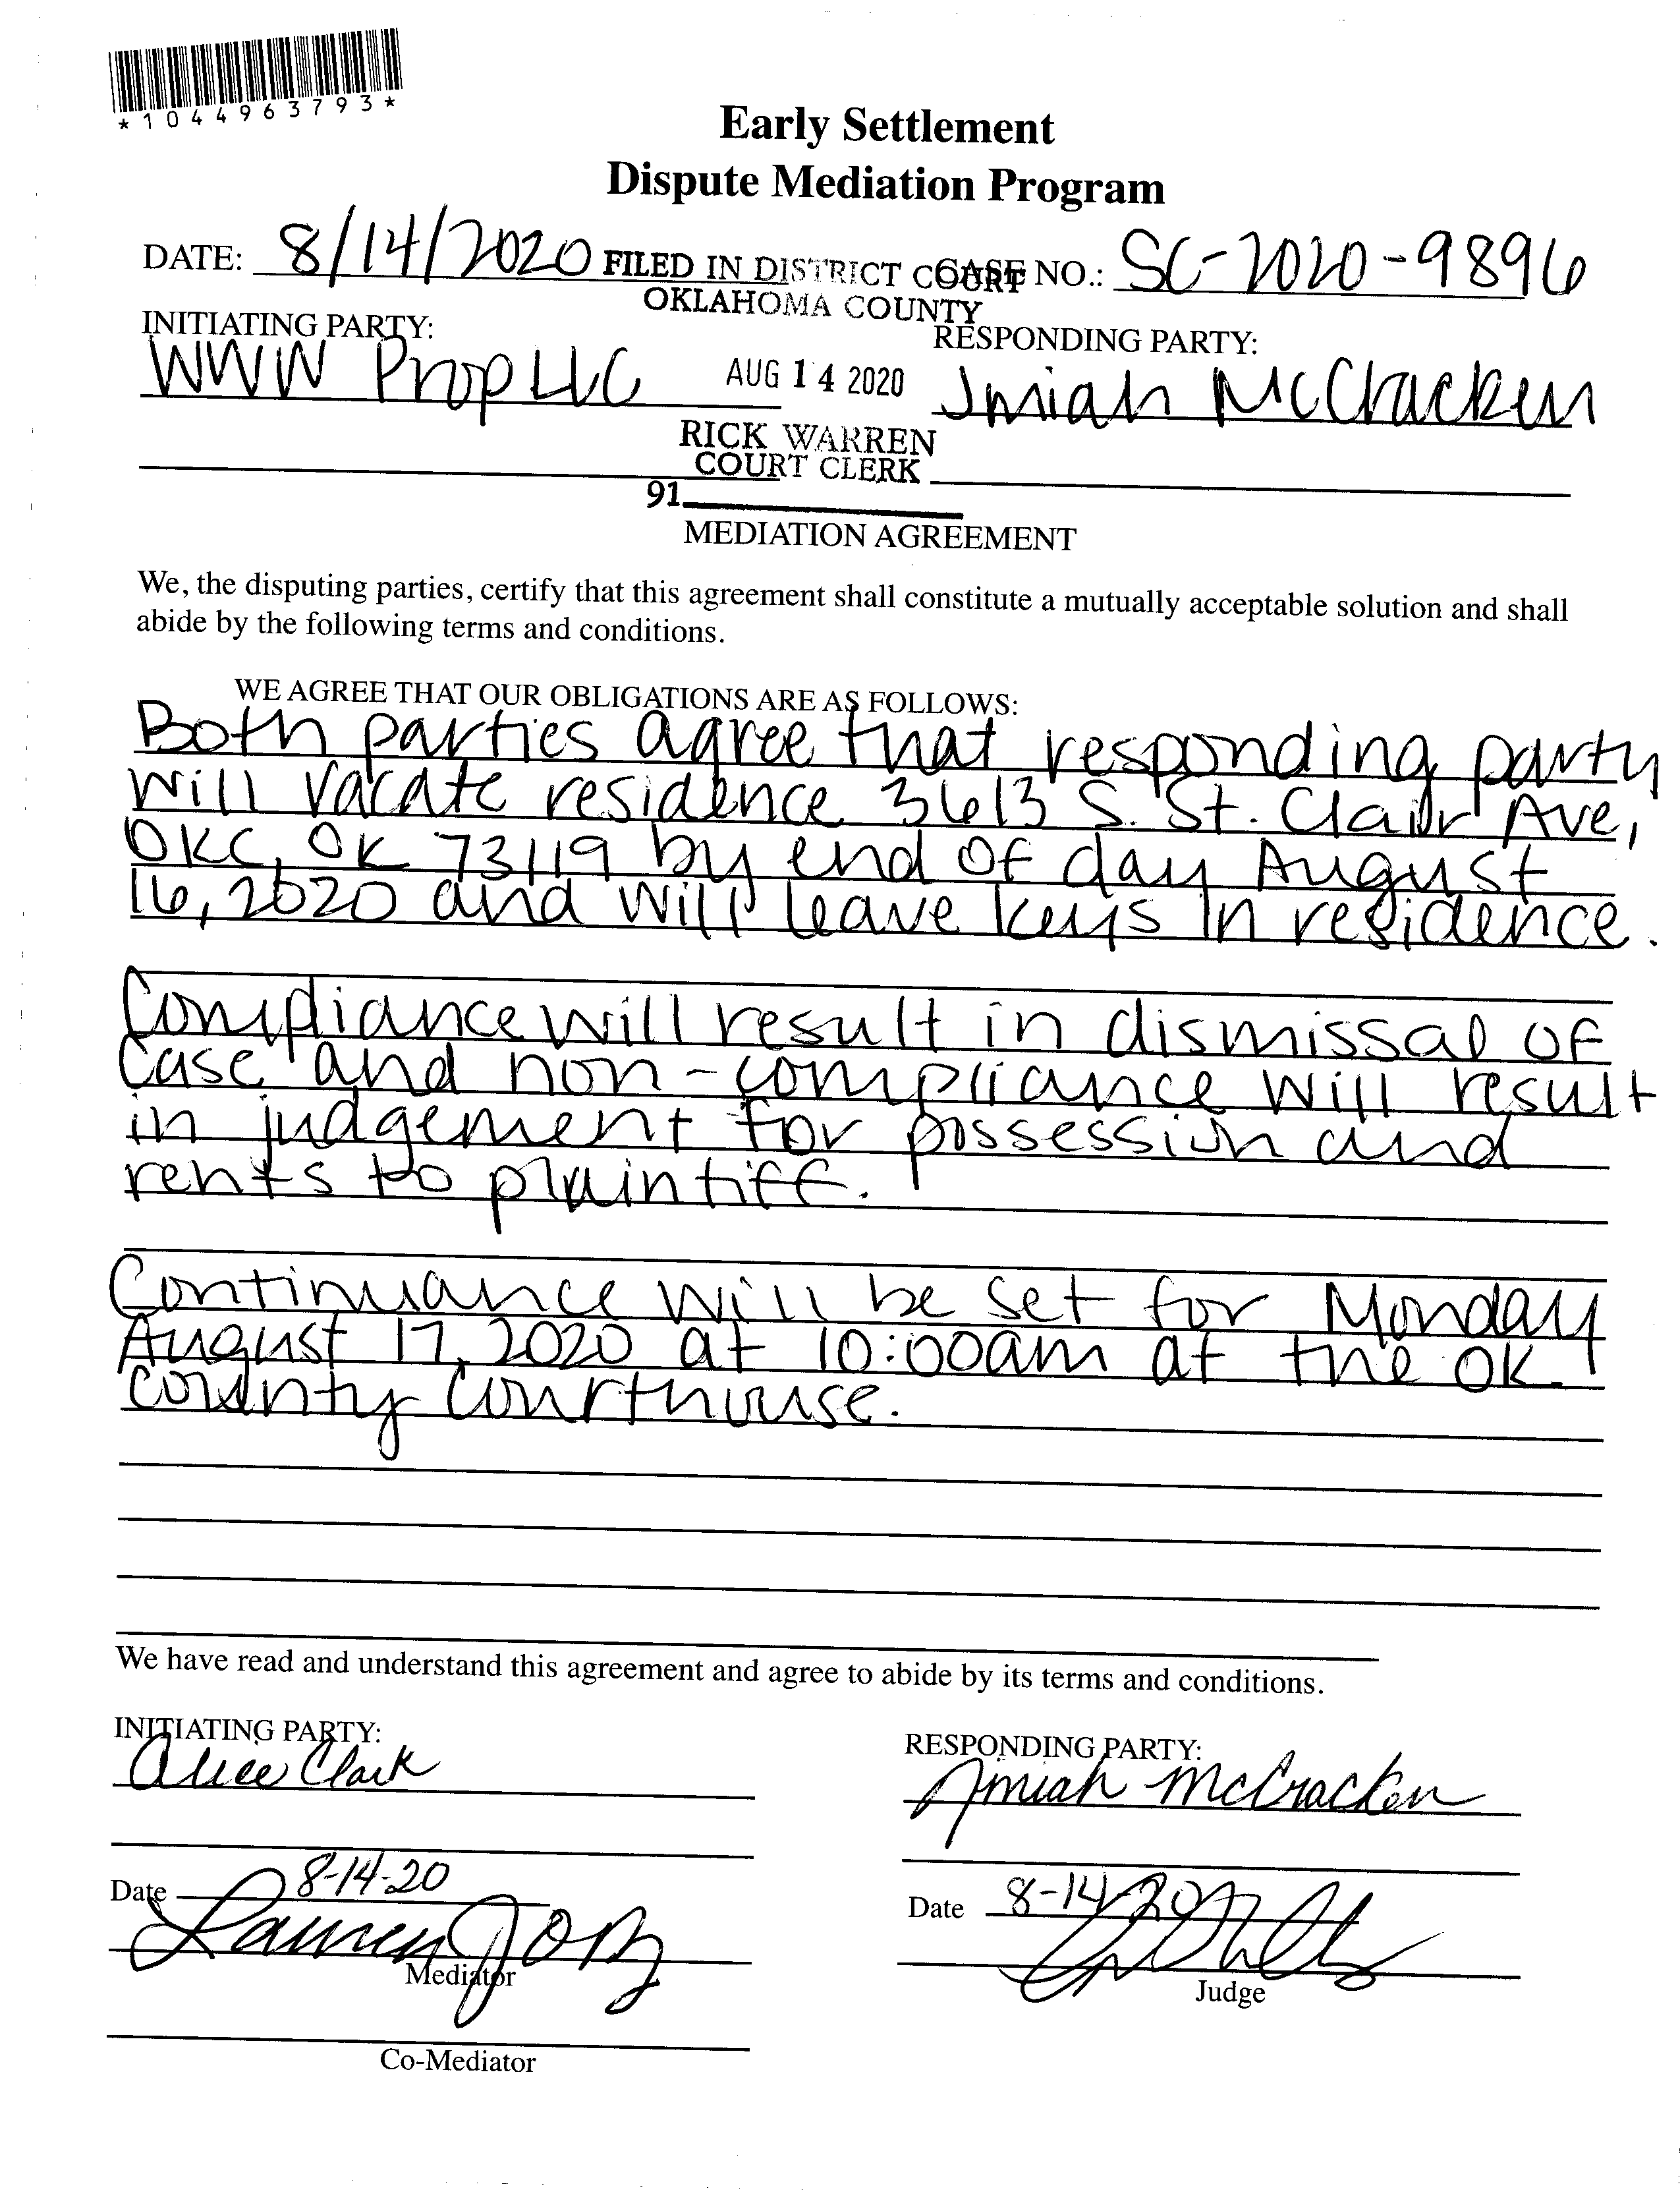 *1044963793*
Early Settlement
Dispute Mediation Program
DATE: 8/14/2020 FILED IN DISTRICT COURT CASE NO.: SC-2020-9896
OKLAHOMA COUNTY
INITIATING PARTY: RESPONDING PARTY:
WWW Prop LLC AUG 14 2020 Jmiah McCracken
RICK WARREN
COURT CLERK
91
MEDIATION AGREEMENT
We, the disputing parties, certify that this agreement shall constitute a mutually acceptable solution and shall
abide by the following terms and conditions.
WE AGREE THAT OUR OBLIGATIONS ARE AS FOLLOWS:
Both parties agree that responding party
will vacate residence 3613 S. St. Clair Ave,
OKC, OK 73119 by end of day August
16, 2020 and will leave keys in residence.
Compliance will result in dismissal of
case and non-compliance will result
in judgement for possession and
rents to plaintiff.
Continuance will be set for Monday
August 17, 2020 at 10:00am at the OK.
county courthouse.
We have read and understand this agreement and agree to abide by its terms and conditions.
INITIATING PARTY: RESPONDING PARTY:
Alice Clark Jmiah McCracken
Date 8-14-20 Date 8-14-20
Lauren
Mediator Judge
Co-Mediator